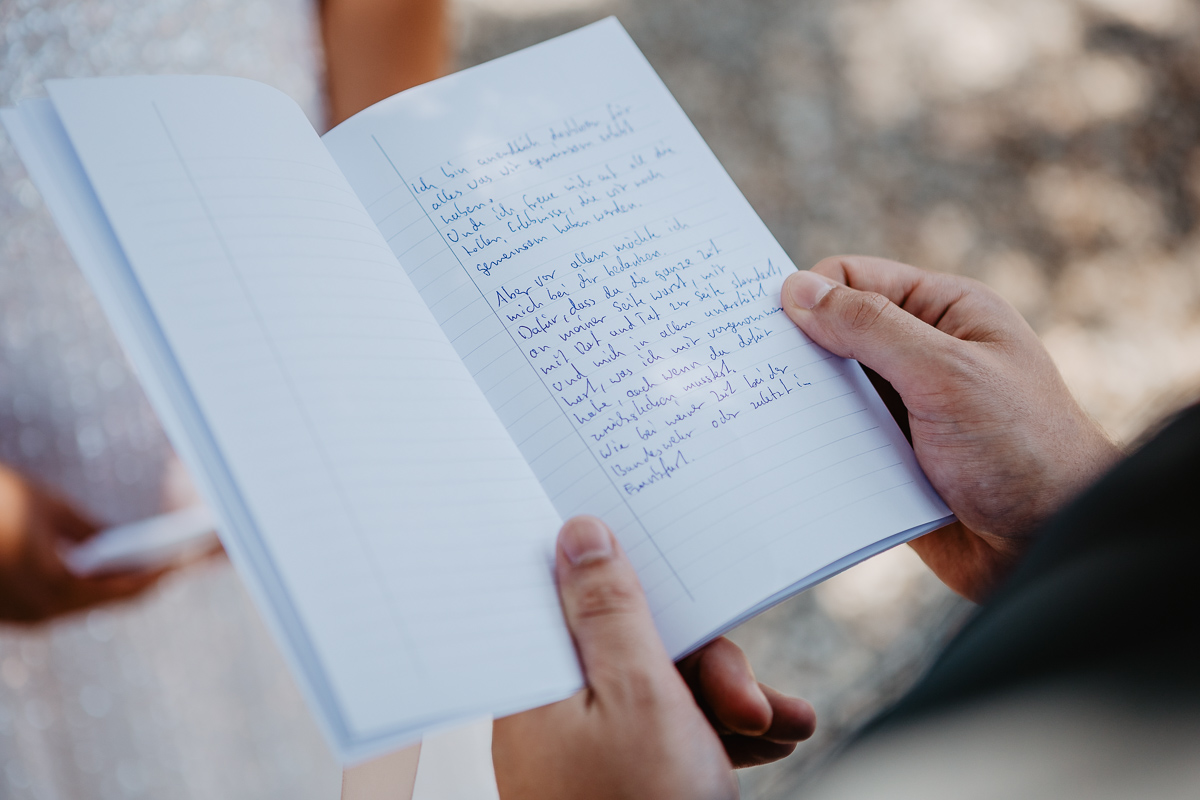 Ich bin unendlich dankbar für
alles was wir gemeinsam erlebt
haben.
Und ich freue mich auf all die
tollen Erlebnisse, die wir noch
gemeinsam haben werden.
Aber vor allem möchte ich
mich bei dir bedanken.
Dafür, dass du die ganze Zeit
an meiner Seite warst, mir
mit Rat und Tat zur Seite standest,
und mich in allem unterstützt
hast, was ich mir vorgenommen
habe, auch wenn du dafür
zurückstecken musstest.
Wie bei meiner Zeit bei der
Bundeswehr oder zuletzt in
Frankfurt.